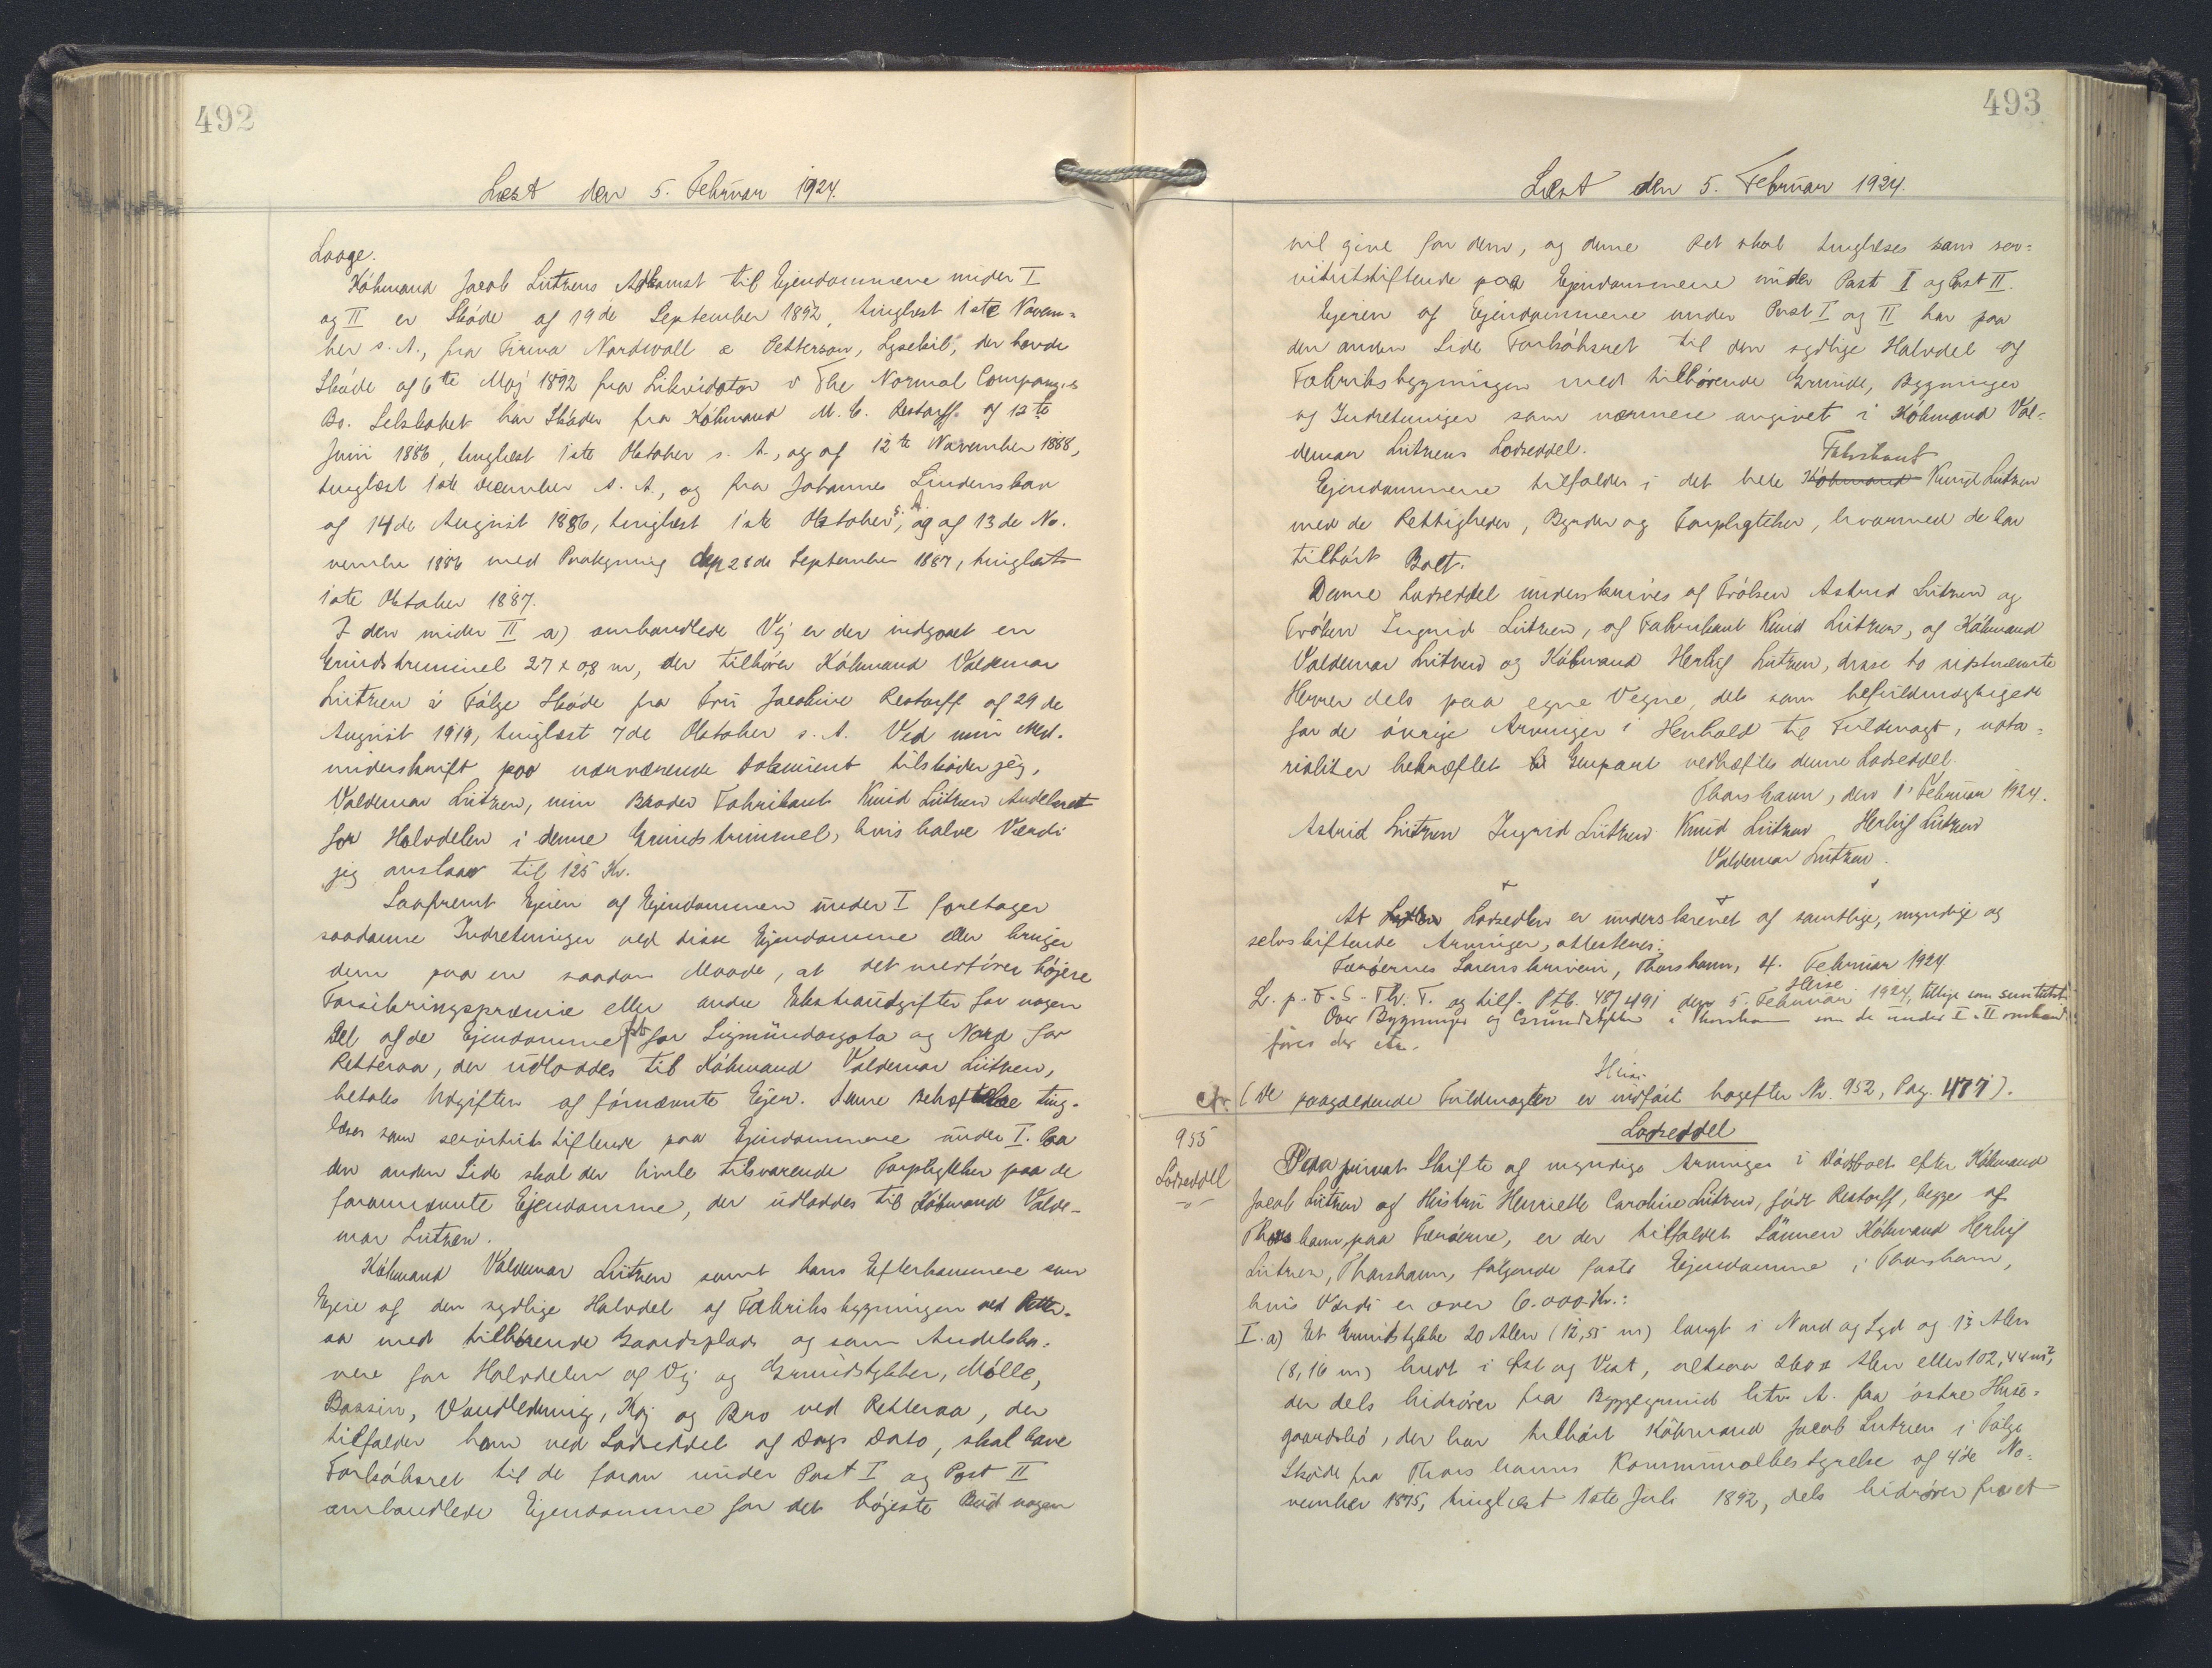 492
Læst den 5. Februar 1924.
Laage.
Købmand Jacob Lützens Adkomst til Ejendommene under I
og II er Skøde af 19de September 1892, tinglæst 1ste Novem=
ber s. A., fra Firma Nordwall & Petterson, Lysekil, der havde
Skøde af 6te Maj 1892 fra Likvidator i The Normal Companys
Bo. Selskabet har Skøder fra Købmand M. C. Restorff af 12te
Juni 1886, tinglæst 1ste Oktober s. A., og af 12te November 1888,
tinglæst 1ste December s. A., og fra Johannes Lindenskov
af 14de August 1886, tinglæst 1ste Oktober s. A., og af 13de No=
vember 1886 med Paategning af 28de September 1887, tinglæst
1ste Oktober 1887.
I den under II a) omhandlede Vej er der indgaaet en
Grundstrimmel 27 x 0,8 m, der tilhører Købmand Valdemar
Lützen i Følge Skøde fra Fru Jacobine Restorff af 29de
August 1919, tinglæst 7de Oktober s. A. Ved min Med=
underskrift paa nærværende Dokument tilskøder jeg,
Valdemar Lützen, min Broder Fabrikant Knud Lützen Andelsret
for Halvdelen i denne Grundstrimmel, hvis halve Værdi
jeg anslaar til 125 Kr.
Saafremt Ejeren af Ejendommen under I foretager
saadanne Indretninger ved disse Ejendomme eller bruger
dem paa en saadan Maade, at det medfører højere
Forsikringspræmie eller andre Ekstraudgifter for nogen
Del af de Ejendomme Øst for Sigmundargøta og Nord for
Retteraa, der udloddes til Købmand Valdemar Lützen,
betales Udgiften af førnævnte Ejer. Denne Behæftelse ting=
læses som servitutstiftende paa Ejendommene under I. Paa
den anden Side skal der hvile tilsvarende Forpligtelser paa de
forannævnte Ejendomme, der udloddes til Købmand Valde=
mar Lützen.
Købmand Valdemar Lützen samt hans Efterkommere som
Ejere af den sydlige Halvdel af Fabriksbygningen ved Retter=
aa med tilhørende Gaardsplads og som Andelsha=
vere for Halvdelen af Vej og Grundstykker, Mølle,
Bassin, Vandledning, Kaj og Bro ved Retteraa, der
tilfalder ham ved Lodseddel af Dags Dato, skal have
Forkøbsret til de foran under Post I og Post II
omhandlede Ejendomme for det højeste Bud nogen
493
Læst den 5. Februar 1924.
vil give for dem, og denne Ret skal tinglæses som ser=
vitutstiftende paa Ejendommene under Post I og Post II.
Ejeren af Ejendommene under Post I og II har paa
den anden Side Forkøbsret til den sydlige Halvdel af
Fabriksbygningen med tilhørende Grunde, Bygninger
og Indretninger som nærmere angivet i Købmand Val=
demar Lützens Lodseddel.
Fabrikant
Ejendommene tilfalder i det hele Købmand Knud Lützen
med de Rettigheder, Byrder og Forpligtelser, hvormed de har
tilhørt Boet.
Denne Lodseddel underskrives af Frøken Astrid Lützen og
Frøken Ingrid Lützen, af Fabrikant Knud Lützen, af Købmand
Valdemar Lützen og Købmand Herluf Lützen, disse to sidstnævnte
Herrer dels paa egne Vegne, dels som befuldmægtigede
for de øvrige Arvinger i Henhold til Fuldmagt, nota=
rialiter bekræftet Genpart vedhæftes denne Lodseddel.
Thorshavn, den 1' Februar 1924.
Astrid Lützen Ingrid Lützen Knud Lützen Herluf Lützen
Valdemar Lützen.
At Lodsedlen er underskrevet af samtlige, myndige og
selvskiftende Arvinger, attesteres.
Færøernes Sorenskriveri, Thorshavn, 4. Februar 1924
Heise
L. p. F. S. Th. T. og tilf. Ptb. 487 491 den 5. Februar 1924, tillige som servitutst.
Over Bygninger og Grundstykker i Thorshavn som de under I-II omhand
føres der etc.
Heise.
cfr. (De paagældende Fuldmagter er indført bagefter Nr. 952, Pag. 477).
Lodseddel
955
Lodseddel
Ved privat Skifte af myndige Arvinger i Dødsboet efter Købmand
Jacob Lützen og Hustru Henriette Caroline Lützen, født Restorff, begge af
Thorshavn, paa Færøerne, er der tilfaldet Sønnen Købmand Herluf
Lützen, Thorshavn, følgende faste Ejendomme i Thorshavn,
hvis Værdi er over 6.000 Kr.:
I. a) Et Grundstykke 20 Alen (12,55 m) langt i Nord og Syd og 13 Alen
(8,16 m) bredt i Øst og Vest, altsaa 260 □ Alen eller 102,44 m²,
der dels hidrører fra Byggegrund Litr A. fra østre Huse=
gaardsbø, der har tilhørt Købmand Jacob Lützen i Følge
Skøde fra Thorshavns Kommunalbestyrelse af 4de No=
vember 1875, tinglæst 1ste Juli 1892, dels hidrører fra et